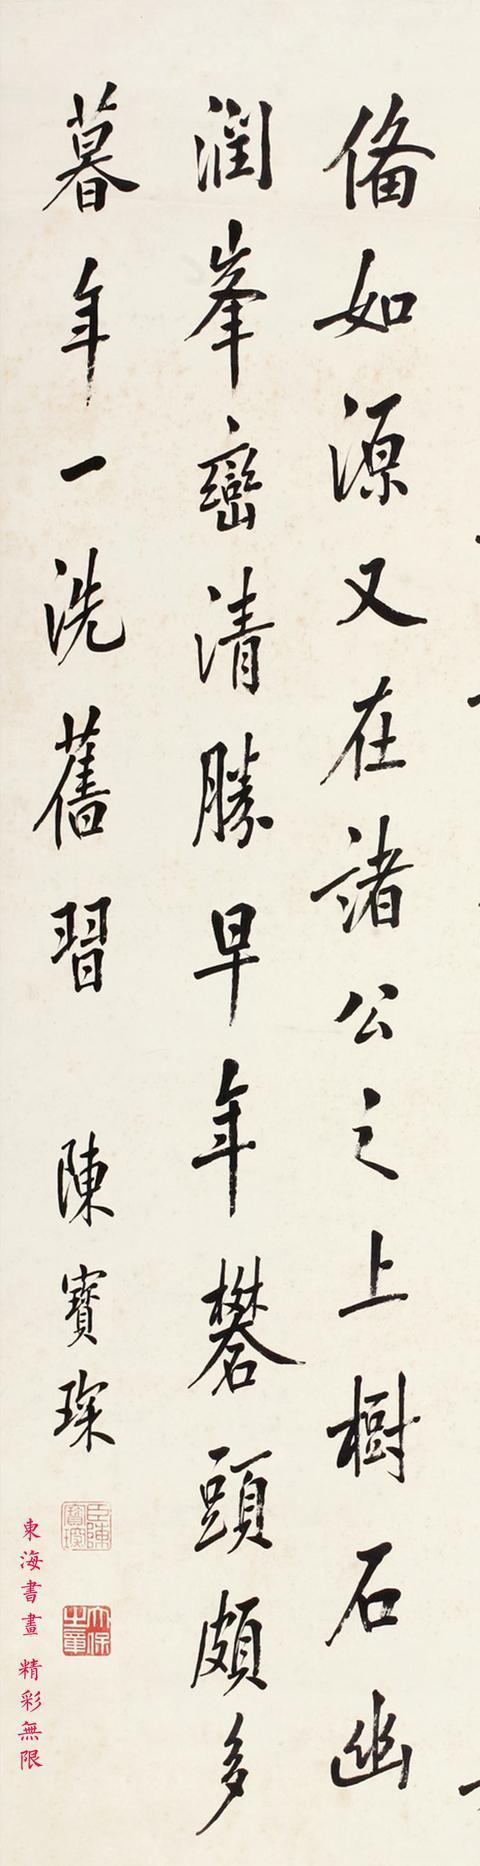 俻如源又在諸公之上樹石幽
潤峯巒清勝早年礬頭頗多
暮年一洗舊習
陳寶琛
臣陳寶琛
太保之章
東海書畫 精彩無限